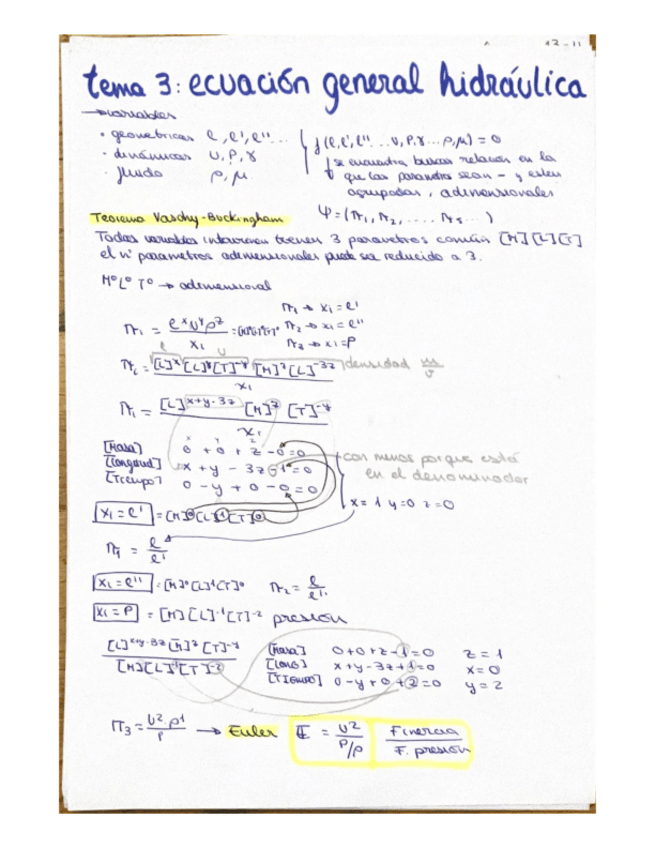 12-11
tema 3: ecuación general hidráulica
→ variables
• geometricas l, l', l''...
• dinámicas υ, P, γ
• fluido ρ, μ
f(l, l', l''... υ, P, γ... ρ, μ) = 0
se encuentra buscar relación en la
que los parametros sean - y esten
agrupados, adimensionales
Ψ = (π₁, π₂, .... π₅ ... )
Teorema Vaschy-Buckingham
Todas variables intervienen tienen 3 parametros común [M] [L] [T]
el nº parametros adimensionales puede ser reducido a 3.
M⁰ L⁰ T⁰ → adimensional
π₁ → x₁ = l'
π₂ → x₁ = l''
π₃ → x₁ = P
πᵢ = l^x υ^y ρ^z / xᵢ = [M]⁰[L]⁰[T]⁰
l υ
πᵢ = [L]^x [L]^y [T]^-y [M]^z [L]^-3z / xᵢ densidad m/v
πᵢ = [L]^x+y-3z [M]^z [T]^-y / xᵢ
x y z
[Masa] 0 + 0 + z - 0 = 0
[Longitud] x + y - 3z - 1 = 0
[Tiempo] 0 - y + 0 - 0 = 0
con menos porque está
en el denominador
x = 1 y = 0 z = 0
xᵢ = l' = [M]⁰ [L]¹ [T]⁰
π₁ = l / l'
xᵢ = l'' = [M]⁰ [L]¹ [T]⁰ π₂ = l / l''
xᵢ = P = [M] [L]⁻¹ [T]⁻² presión
[L]^x+y-3z [M]^z [T]^-y / [M] [L]⁻¹ [T]⁻²
[Masa] 0 + 0 + z - 1 = 0 z = 1
[Long] x + y - 3z + 1 = 0 x = 0
[Tiempo] 0 - y + 0 + 2 = 0 y = 2
π₃ = υ²·ρ¹ / P → Euler E = υ² / P/ρ F inercia / F. presión